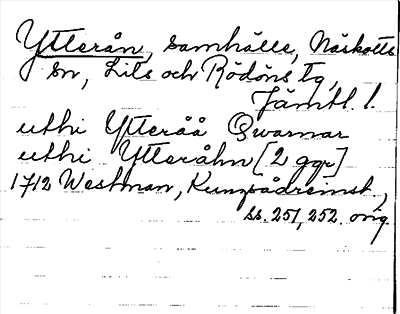 Ytterån, samhälle, Näskotts
sn, Lits och Rödöns tg,
Jämtl. l.
uthi Ytteråå Qwarnar
uthi Ytteråhn [2 ggr]
1712 Westman,
ss. 251, 252. orig.